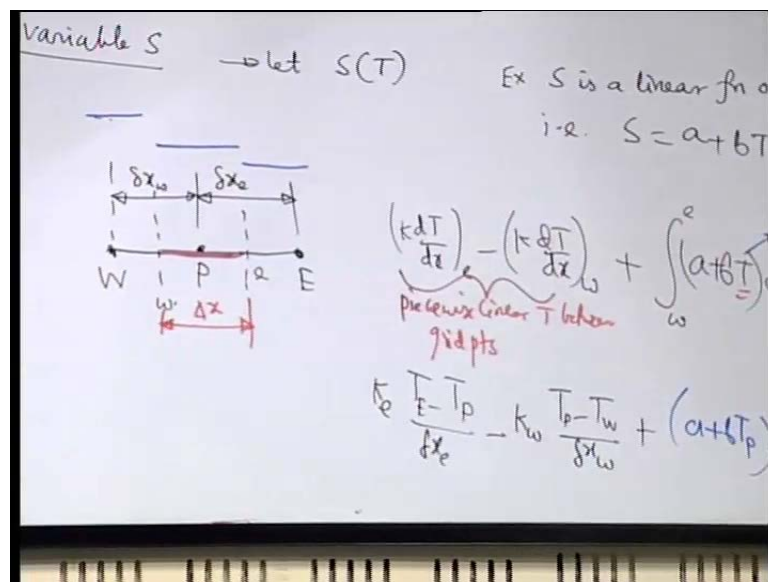 variable S
→ let S(T)
Ex S is a linear fn o
i.e. S = a + bT
δx_w δx_e
W P e E
w
Δx
(k dT/dx)_e - (k dT/dx)_w + ∫_w^e (a+bT)
piecewise linear T between
grid pts
k_e (T_E - T_P)/δx_e - k_w (T_P - T_W)/δx_w + (a+bT_P)